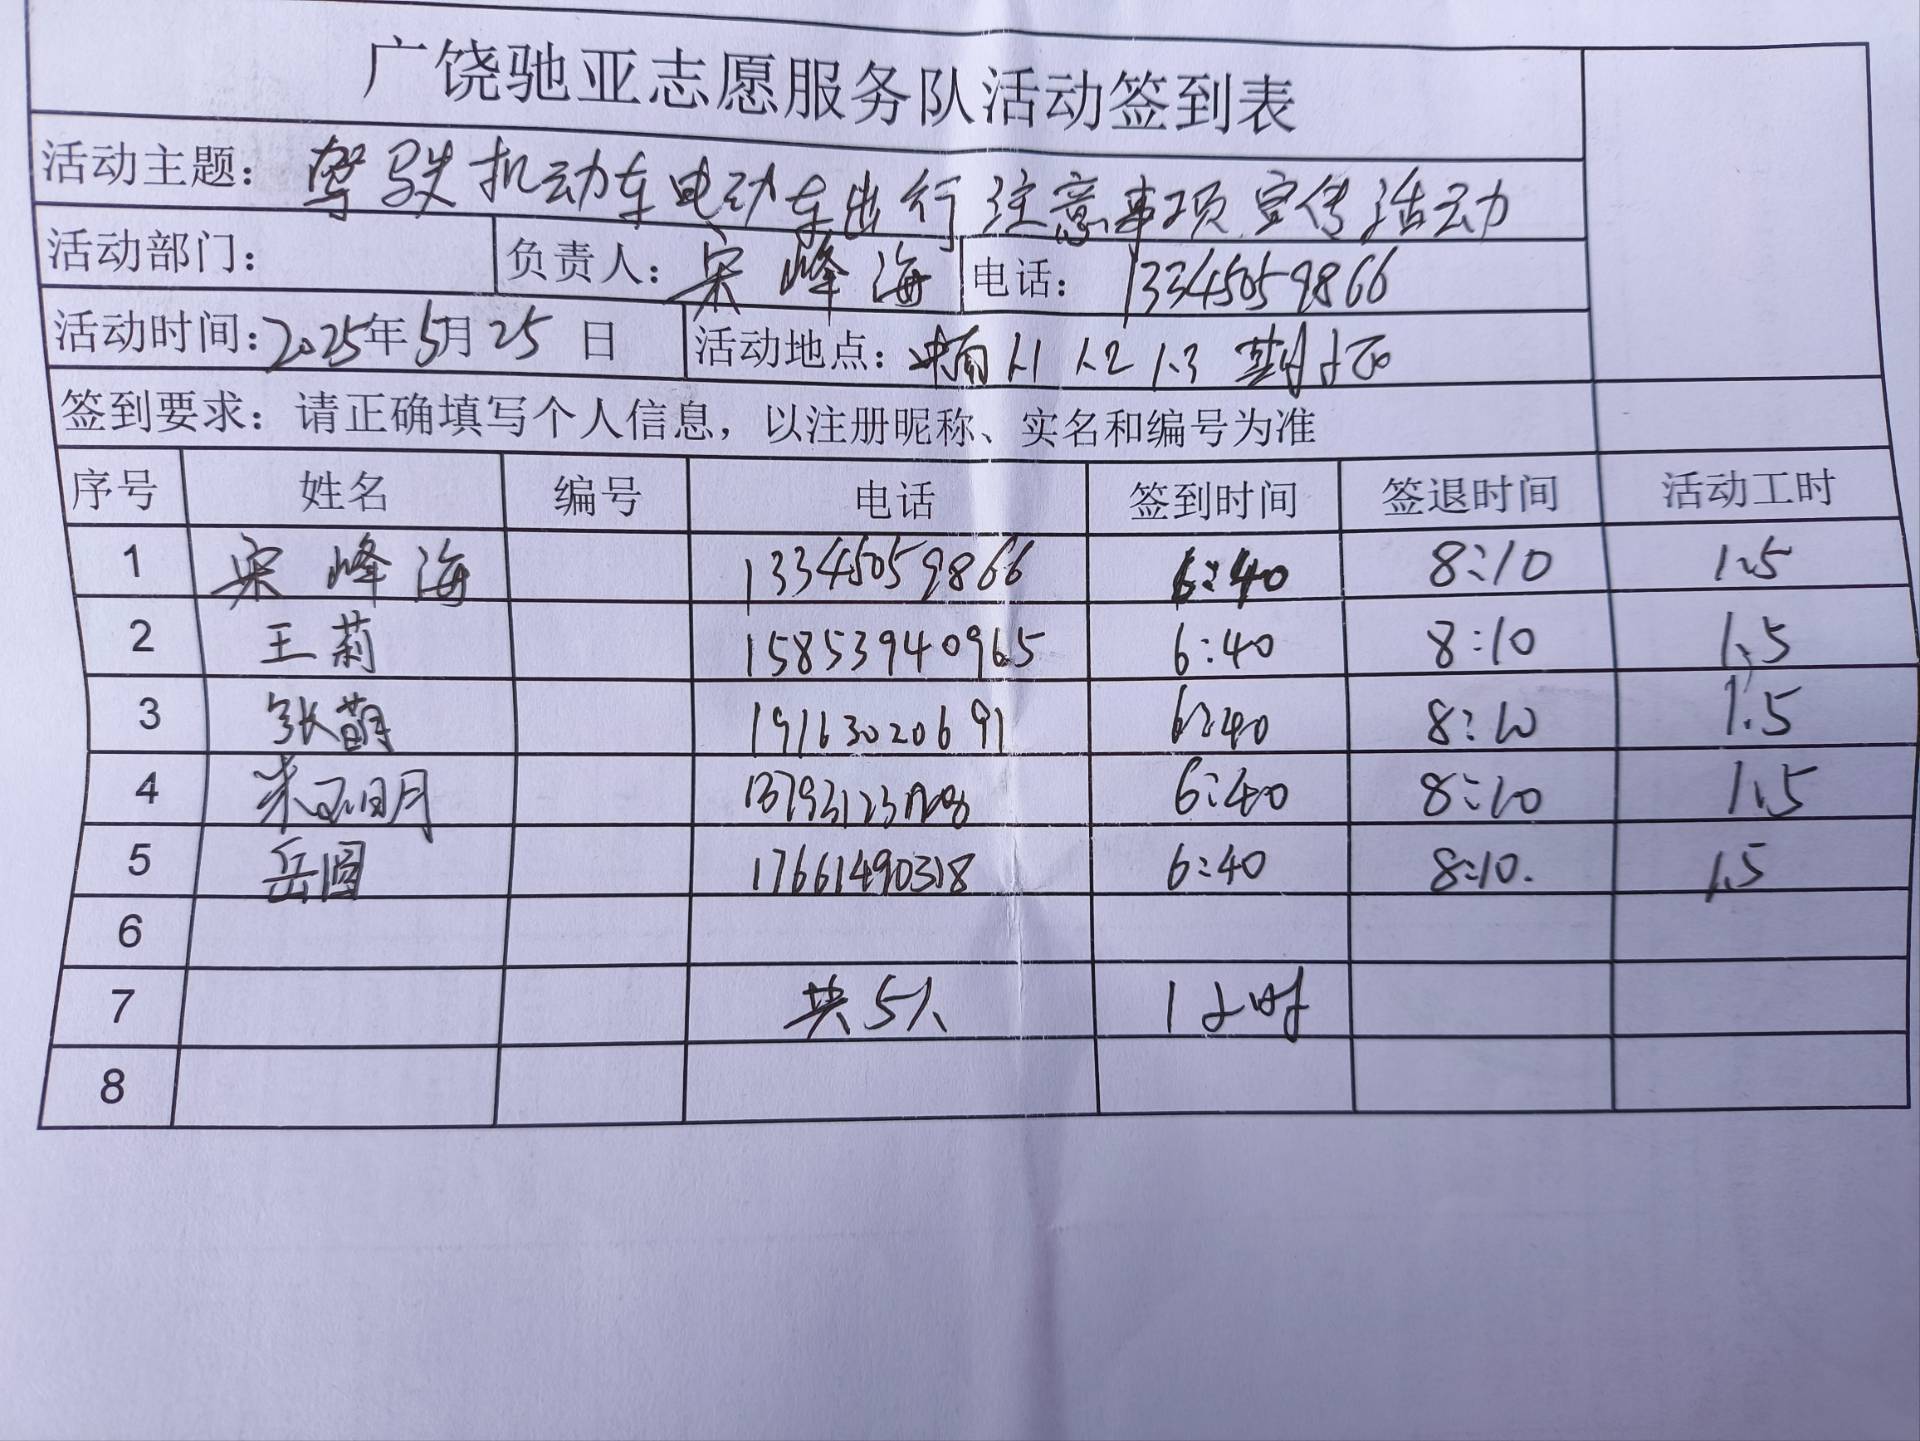 广饶驰亚志愿服务队活动签到表
活动主题: 驾驶机动车电动车出行注意事项宣传活动
活动部门: 负责人: 宋峰海 电话: 13345059866
活动时间: 2025年5月25日 活动地点:
签到要求: 请正确填写个人信息，以注册昵称、实名和编号为准
序号 姓名 编号 电话 签到时间 签退时间 活动工时
1 宋峰海 13345059866 6:40 8:10 1.5
2 王莉 15853940965 6:40 8:10 1.5
3 张萌 19163020691 6:40 8:10 1.5
4 6:40 8:10 1.5
5 岳圆 17661490318 6:40 8:10. 1.5
6
7 共5人 1小时
8